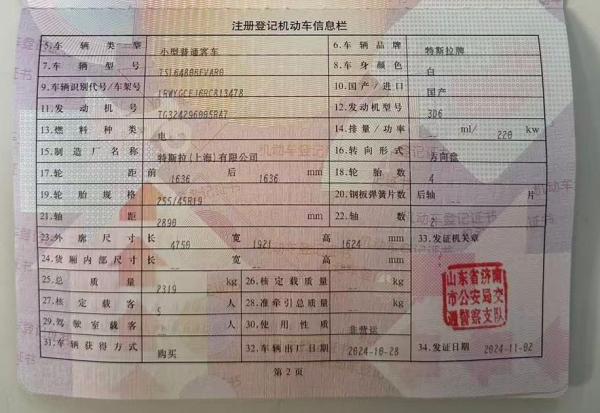 注册登记机动车信息栏
5.车辆类型 小型普通客车 6.车辆品牌 特斯拉牌
7.车辆型号 TSL6480BEVAR0 8.车身颜色 白
9.车辆识别代号/车架号 10.国产/进口 国产
11.发动机号 TG324296005BA7 12.发动机型号 3D6
13.燃料种类 电 14.排量/功率 -- ml/ 220 kw
15.制造厂名称 特斯拉(上海)有限公司 16.转向形式 方向盘
17.轮距 前 1636 后 1636 mm 18.轮胎数 4
19.轮胎规格 255/45R19 20.钢板弹簧片数 后轴 -- 片
21.轴距 2890 mm 22.轴数 2
23.外廓尺寸 长 4750 宽 1921 高 1624 mm 33.发证机关章
24.货厢内部尺寸 长 -- 宽 -- 高 -- mm
25.总质量 2319 kg 26.核定载质量 -- kg
27.核定载客 5 人 28.准牵引总质量 -- kg
29.驾驶室载客 -- 人 30.使用性质 非营运
31.车辆获得方式 购买 32.车辆出厂日期 2024-10-28 34.发证日期 2024-11-02
山东省济南
市公安局交
通警察支队
第2页